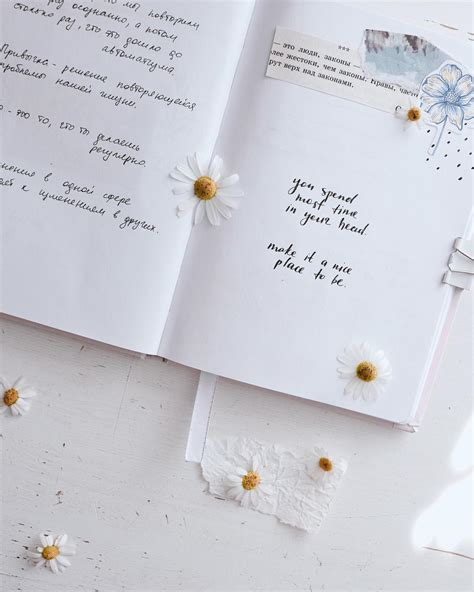 раз осознанно, а потом
столько раз, что это дошло до
автоматизма.
Привычка - решение повторяющейся
проблемы нашей жизни.
- это то, что ты делаешь
регулярно.
в одной сфере
к изменениям в других.
***
— это люди, законы —
лее жестоки, чем законы. Нравы, част
рут верх над законами.
you spend
most time
in your head.
make it a nice
place to be.